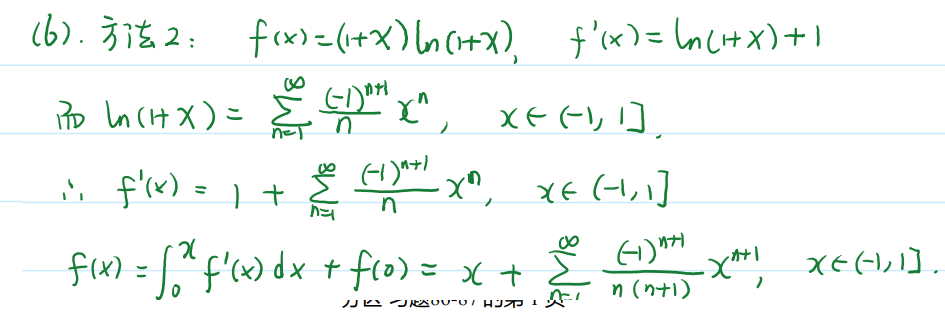 (6). 方法2: f(x)=(1+x)ln(1+x), f'(x)=ln(1+x)+1
而 ln(1+x)= ∑_{n=1}^{∞} \frac{(-1)^{n+1}}{n} x^n, x∈(-1,1].
∴ f'(x) = 1 + ∑_{n=1}^{∞} \frac{(-1)^{n+1}}{n} x^n, x∈(-1,1]
f(x)=∫_0^x f'(x)dx + f(0) = x + ∑_{n=1}^{∞} \frac{(-1)^{n+1}}{n(n+1)} x^{n+1}, x∈(-1,1].
习题86-87 的第 1 页